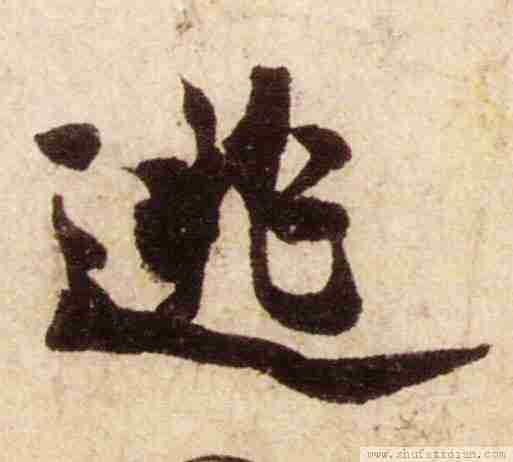 逃
www.shufazidian.com